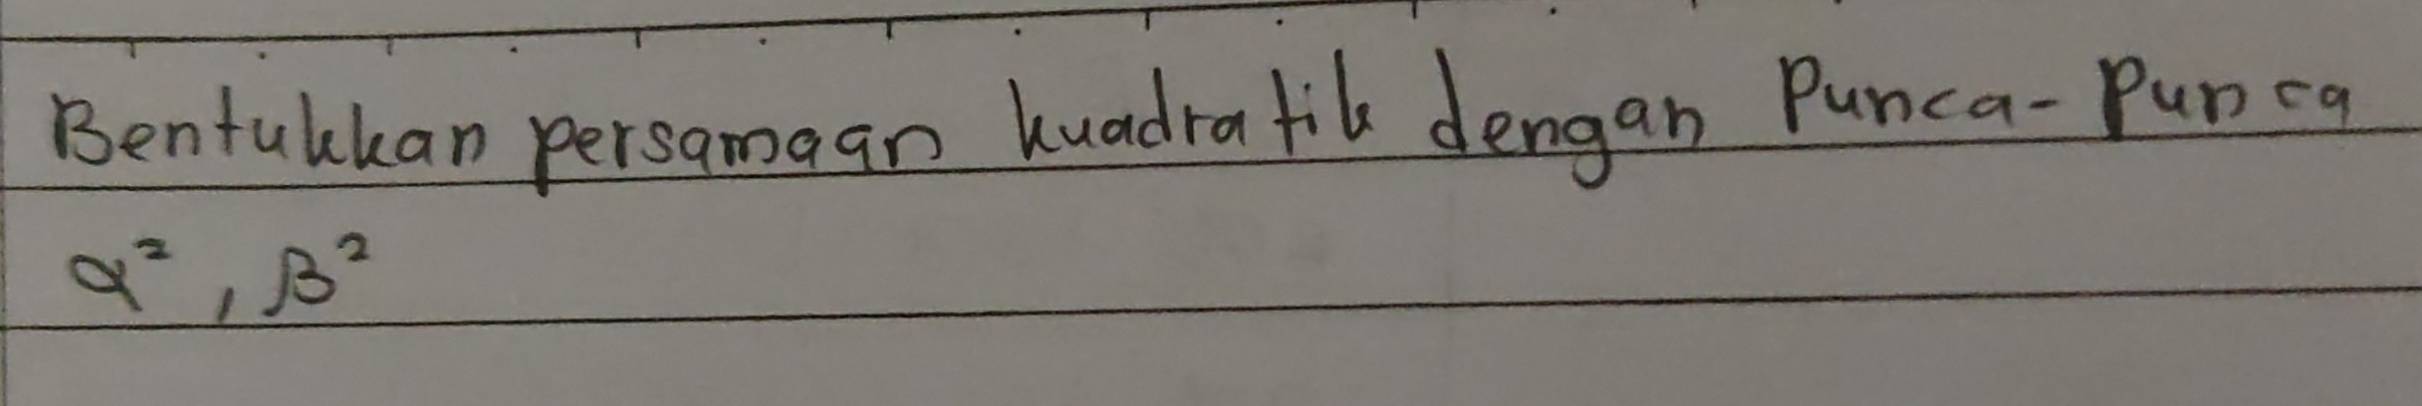 Bentukkan persamaan kuadratik dengan Punca-Punca
α², β²